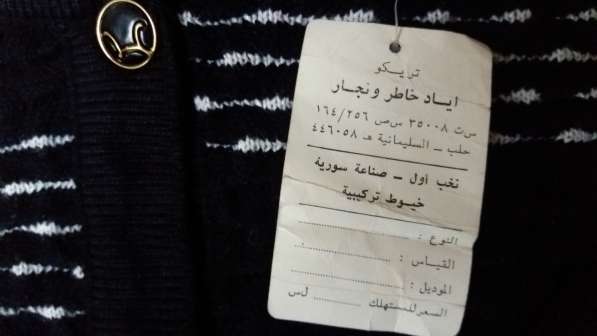 تريكو
اياد خاطر ونجار
س ت ٣٥٠٠٨ س ص ١٦٤/٢٥٦
حلب – السليمانية هـ ٤٤٦٠٥٨
نخب أول – صناعة سورية
خيوط تركيبية
النوع :
القياس :
الموديل :
السعر للمستهلك ل.س